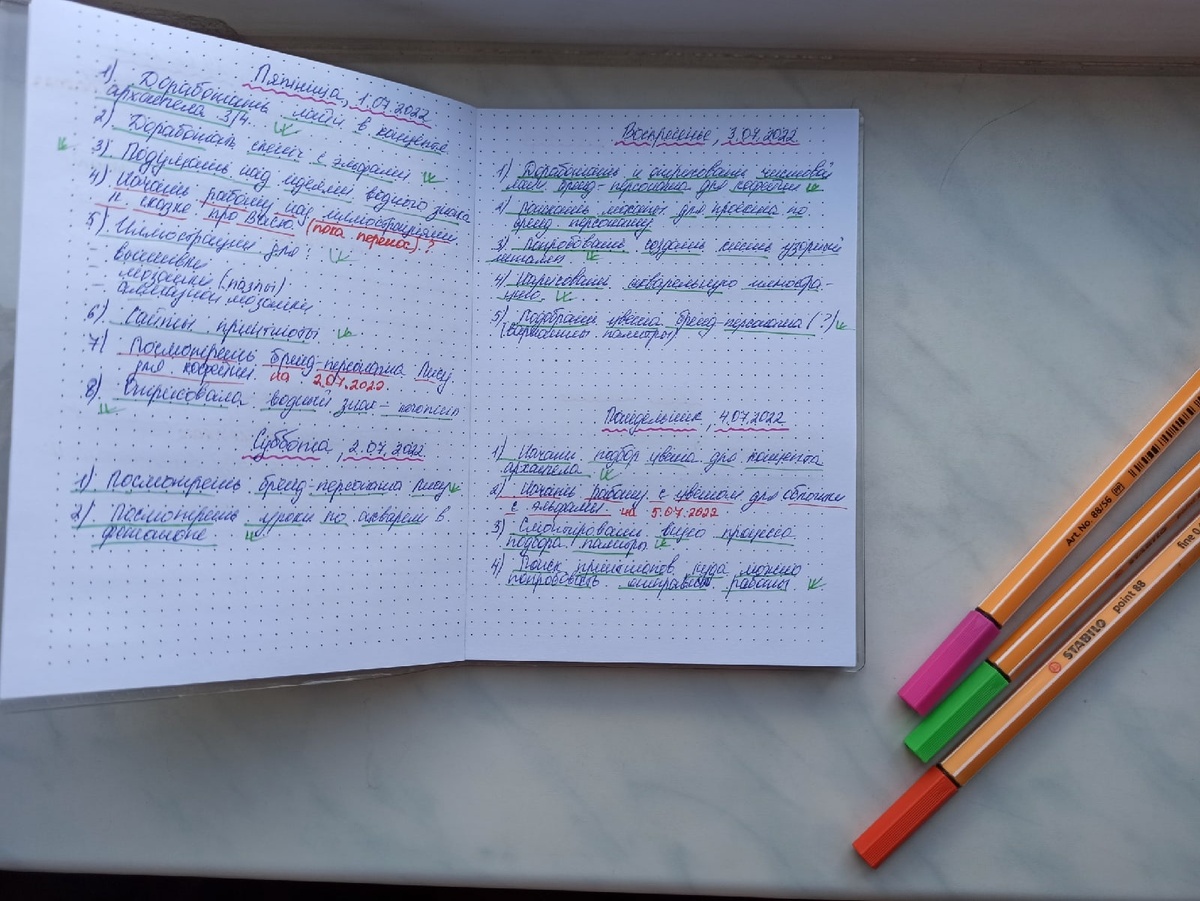 Пятница, 1.07.2022
1) Доработать лайн в концепте
архангела 3/4.
2) Доработать скетч с эльфами
3) Подумать над идеями водного знака
4) Начать работу над иллюстрациями
к сказке про (пока перенос)?
5) Иллюстрации для:
– вышивки
– мозаики (пазлы)
– алмазной мозаики
6) Сайты принтшопы
7) Посмотреть бренд-персонажа Лису
для кофейни на 2.07.2022.
8) Отрисовала водный знак - логотип
Суббота, 2.07.2022
1) Посмотреть бренд-персонажа Лису
2) Посмотреть уроки по акварели в
фотошопе
Воскресенье, 3.07.2022
1) Доработать и отрисовать чистовой
лайн бренд-персонажа для кофейни
2) мокапы для проекта по
бренд персонажу
3) Попробовать создать кисть узорный
штамп
4) Нарисовать акварельную иллюстра-
цию.
5) Подобрать цвета бренд-персонажа (?)
(варианты палитры)
Понедельник, 4.07.2022
1) Начать подбор цвета для концепта
архангела
2) Начать работу с цветом для обложки
с эльфами. на 5.07.2022
3) Смонтировать видео процесса
подбора палитры
4) Поиск принтшопов куда можно
попробовать отправить работы
Art.No. 88/56
STABILO point 88
fine 0